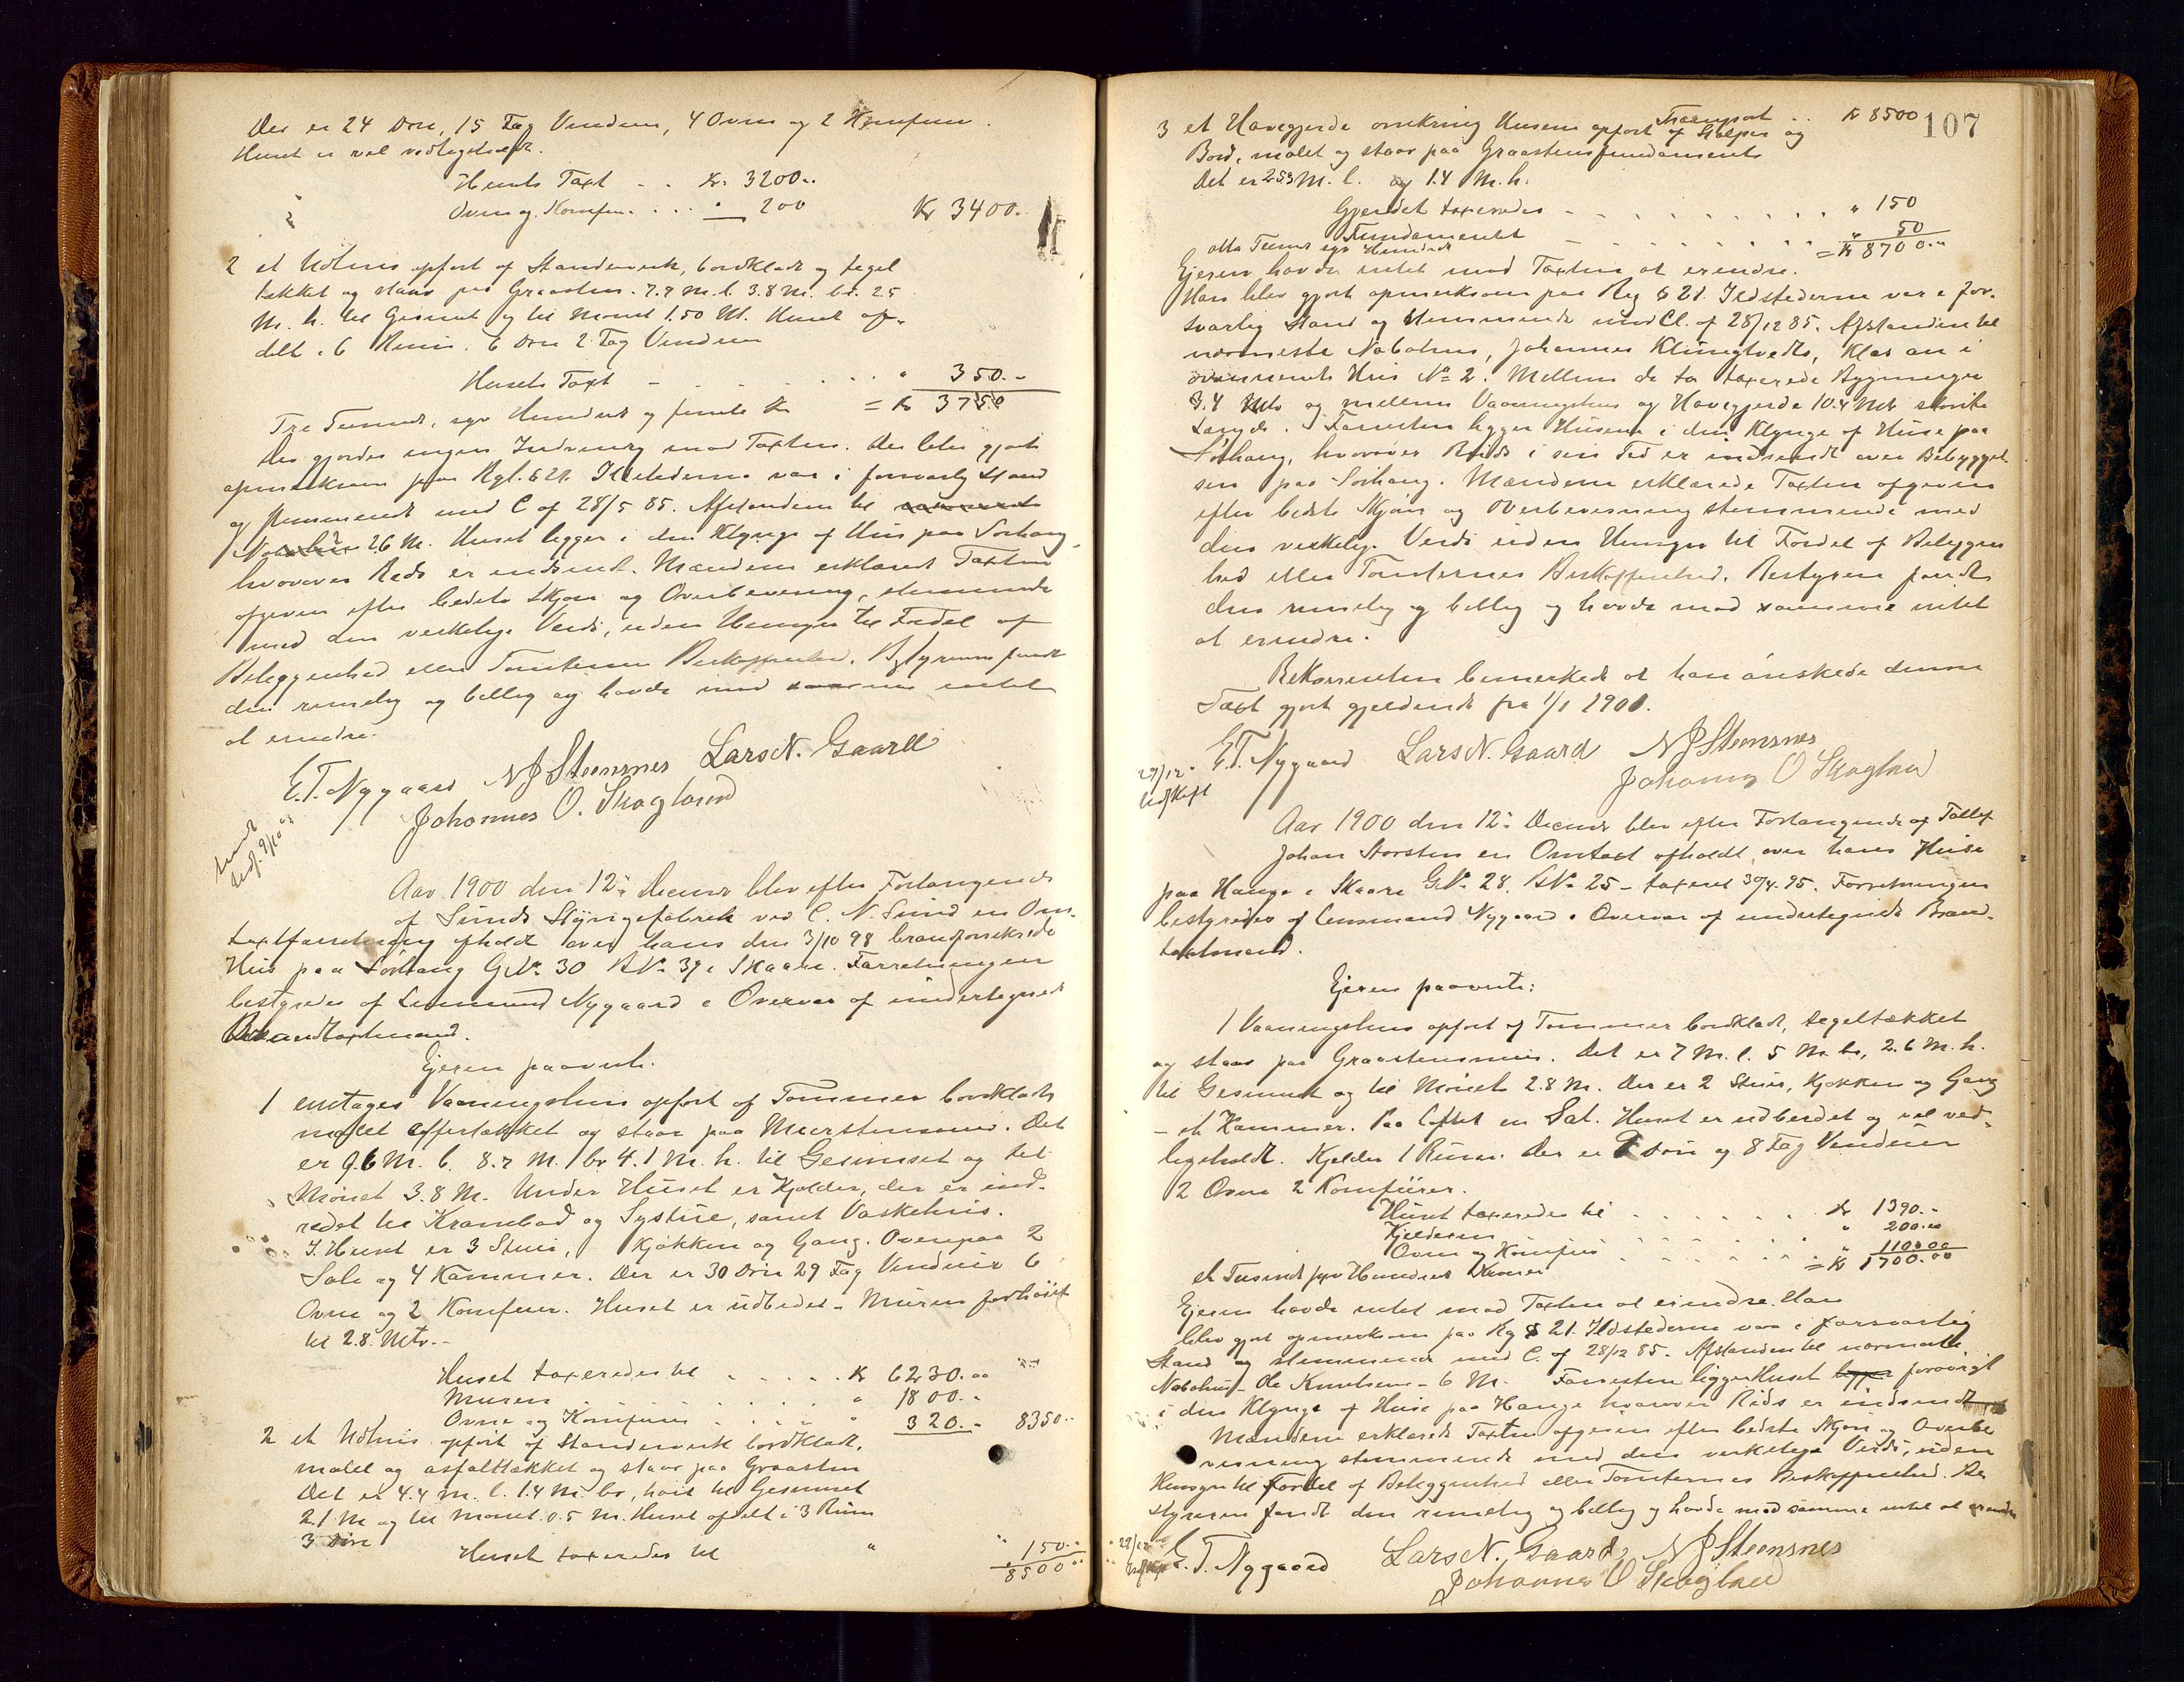 Der er 24 Döre, 15 Fag Vinduer, 4 Ovne og 2 Komfurer.
Huset er vel vedligeholdt.
Husets Taxt . . Kr. 3200..
Ovne og Komfur. . . . " 200 Kr 3400.
2 et Udhus opfört af Standerverk, bordklædt og tegel
tækket og staar paa Graasten. 7.7 M. l. 3.8 M. br. 25
M. h. til Gesimset og til Mönet 1.50 M. Huset af-
delt i 6 Rum. 6 Döre 2 Fag Vinduer
Husets Taxt - . . . . . . " 350.-
Tre Tusinde, syv Hundrede og femti Kr = Kr 3750
Der gjordes ingen Indvending mod Taxten. Der blev gjort
opmerksom paa Rgl. § 21. Ildstederne var i forsvarlig Stand
og stemmende med C af 28/5 85. Afstanden til nærmeste
Nabohus 26 M. Huset ligger i den Klynge af Hus paa Sörhaug,
hvorover Rids er indsendt. Mændene erklærede Taxten
afgiven efter bedste Skjön og Overbevisning, stemmende
med den verkelige Verdi, uden Hensyn til Fordel af
Beleggenhed eller Tomternes Beskaffenhed. Bestyreren fandt
den rimelig og billig og havde mod samme intet
at erindre.
E. T. Nygaard N J Steensnes Lars N. Gaard
Johannes O. Skogland
Udf. 9/10 02
Aar 1900 den 12te Decembr blev efter Forlangende
af Sunds Stöngefabrik ved C. N. Sund en Om-
taxtforretning afholdt over hans den 3/10 98 brandforsikrede
Hus paa Sörhaug G.No 30 B.No 39 i Skaare. Forretningen
bestyredes af Lensmand Nygaard i Overvær af undertegnede
Brandtaxtmænd.
Ejeren paaviste.
1 enetages Vaaningshus opfört af Tömmer bordklædt
malet skiffertækket og staar paa Murstensmur. Det
er 9.6 M. l. 8.7 M. br 4.1 M. h. til Gesimset og til
Mönet 3.8 M. Under Huset er Kjelder, der er ind-
redet til Krambod og Systue, samt Vaskehus.
I Huset er 3 Stuer, Kjökken og Gang. Ovenpaa 2
Sale og 4 Kammer. Der er 30 Döre 29 Fag Vinduer 6
Ovne og 2 Komfurer. Huset er udbedet - Muren forhöiet
til 2.8. Mtr.-
Huset taxeredes til . . . . . Kr 6230.00
Muren . . . . . . . " 1800.-
Ovne og Komfurer . . . . . " 320.- 8350..
2 et Udhus opfört af Standerverk bordklædt.
malet og asfalttækket og staar paa Graasten
Det er 4.4 m. l. 1.4 M br, höit til Gesimset
2.1 M og til Mönet 0.5 M. Huset afdelt i 3 Rum
3 Döre
Huset taxeredes til " " 150..
8500..
107
Transport . . Kr 8500
3 et Havegjerde omkring Husene opfört af Stolper og
Bord, malet og staar paa Graastensfundament
Det er 253 M. l. og 1.4 M. h.
Gjerdet taxeredes - . . . . . . . . . " 150
Fundamentet - . . . . . . . . " 50
otte Tusind syv Hundrede = Kr 8700..
Ejeren havde intet mod Taxten at erindre.
Han blev gjort opmerksom paa Rgl § 21. Ildstederne var i for-
svarlig Stand og stemmende med Cl. af 28/12 85. Afstanden til
nærmeste Nabohus, Johannes Klungtvedts,
ovennævnte Hus No 2. Mellem de to taxerede Bygninger
3.4 Mtr og mellem Vaaningshus og Havegjerde 10.4 Mtr störste
Længde. Forresten ligger Husene i den Klynge af Huse paa
Sörhaug, hvorover Rids i sin Tid er indsendt over Bebyggel-
sen paa Sörhaug. Mændene erklærede Taxten afgiven
efter bedste Skjön og Overbevisning stemmende med
den verkelige Verdi uden Hensyn til Fordel af Beliggen
hed eller Tomternes Beskaffenhed. Bestyreren fandt
den rimelig og billig og havde mod samme intet
at erindre.
Rekvirenten bemerkede at han önskede denne
Taxt gjort gjeldende fra 1/1 1901.
29/12. E. T. Nygaard Lars N. Gaard N J Steensnes
Udskft Johannes O Skogland
Aar 1900 den 12te Decembr blev efter Forlangende af Tollef
Johan Storsten en Omtaxt afholdt over hans Huse
paa Hauge i Skaare G.No 28. B.No 25 - taxeret 30/4. 95. Forretningen
bestyredes af Lensmand Nygaard i Overvær af undertegnede Brand-
taxtmænd.
Ejeren paaviste:
1 Vaaningshus opfört af Tömmer bordklædt, tegeltækket
og staar paa Graastensmur. Det er 7 M. l. 5 M. br, 2.6 M. h.
til Gesimset og til Mönet 2.8 M. Der er 2 Stuer, Kjökken og Gang
- et Kammer. Paa Loftet en Sal. Huset er udbedet og vel ved-
ligeholdt. Kjelder 1 Rum. Der er 9 Döre og 8 Fag Vinduer
2 Ovne 2 Komfurer.
Huset taxeredes til . . . . . . Kr 1390.-
Kjelderen . . . . . . . " 200.00
Ovne og Komfur . . . . . . " 110.00
et Tusinde syv Hundrede Kroner = Kr 1700.00
Ejeren havde intet mod Taxten at erindre. Han
blev gjort opmerksom paa Rgl § 21. Ildstederne var i forsvarlig
Stand og stemmende med C. af 28/12 85. Afstanden til nærmeste
Nabohus - Ole Knutsens - 6 M. Forresten ligger Huset ligger forövrigt
i den Klynge af Huse paa Hauge hvorover Rids er indsendt
Mændene erklærede Taxten afgiven efter bedste Skjön og Overbe
visning stemmende med den verkelige Verdi, uden
Hensyn til Fordel af Beleggenhed eller Tomternes Beskaffenhed. Be
styreren fandt den rimelig og billig og havde mod samme intet at erindre
29/12 E. T. Nygaard Lars N. Gaard N J Steensnes
Johannes O Skogland